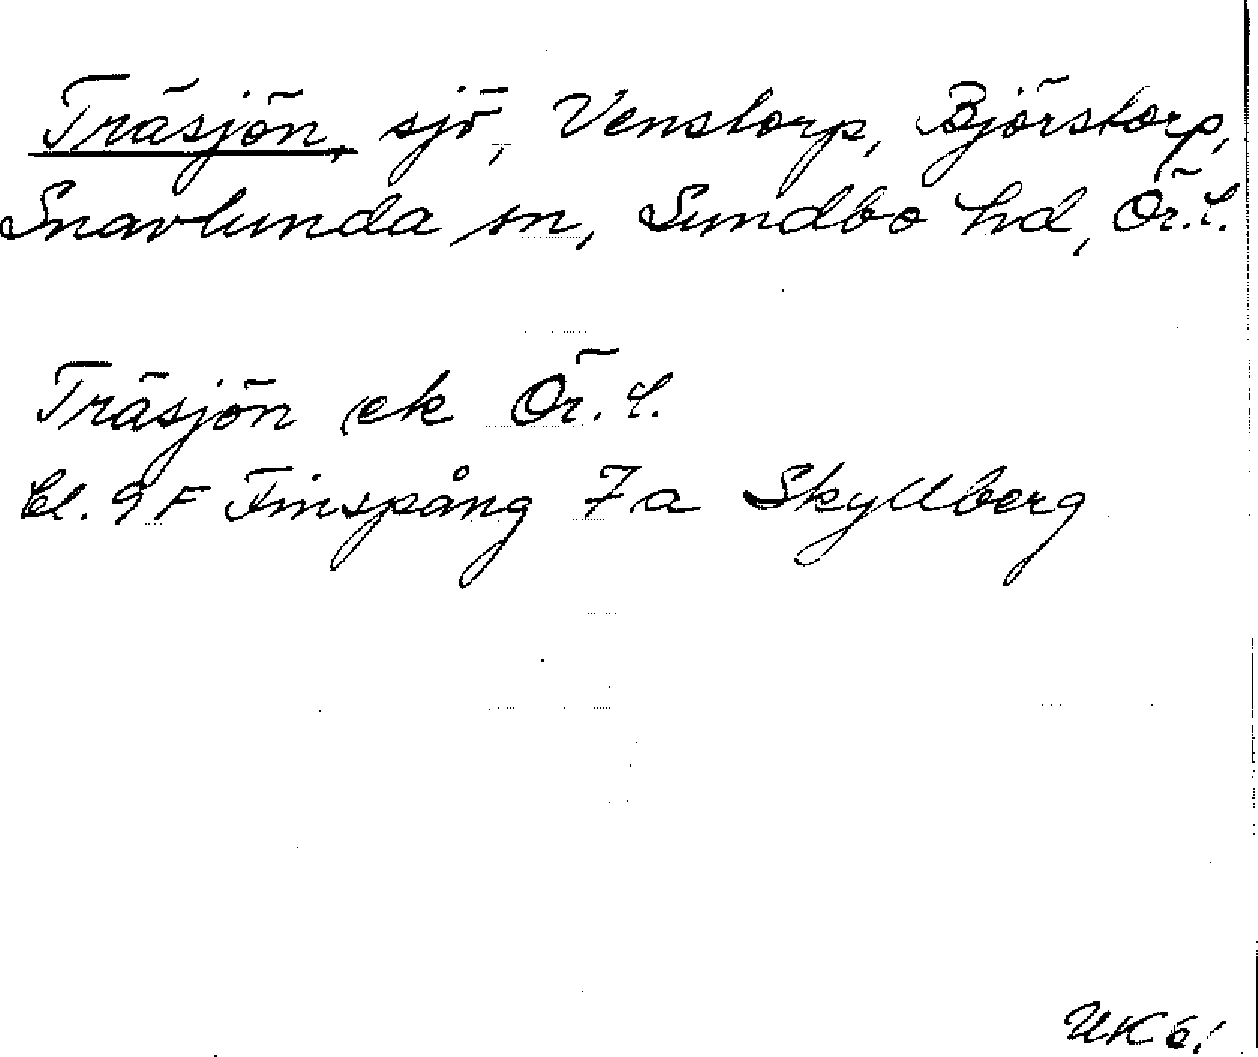 Träsjön, sjö, Venstorp, Björstorp,
Snavlunda sn, Sundbo hd, Ör. l.
Träsjön ek Ör. l.
bl. 9F Finspång 7a Skyllberg
UK 61